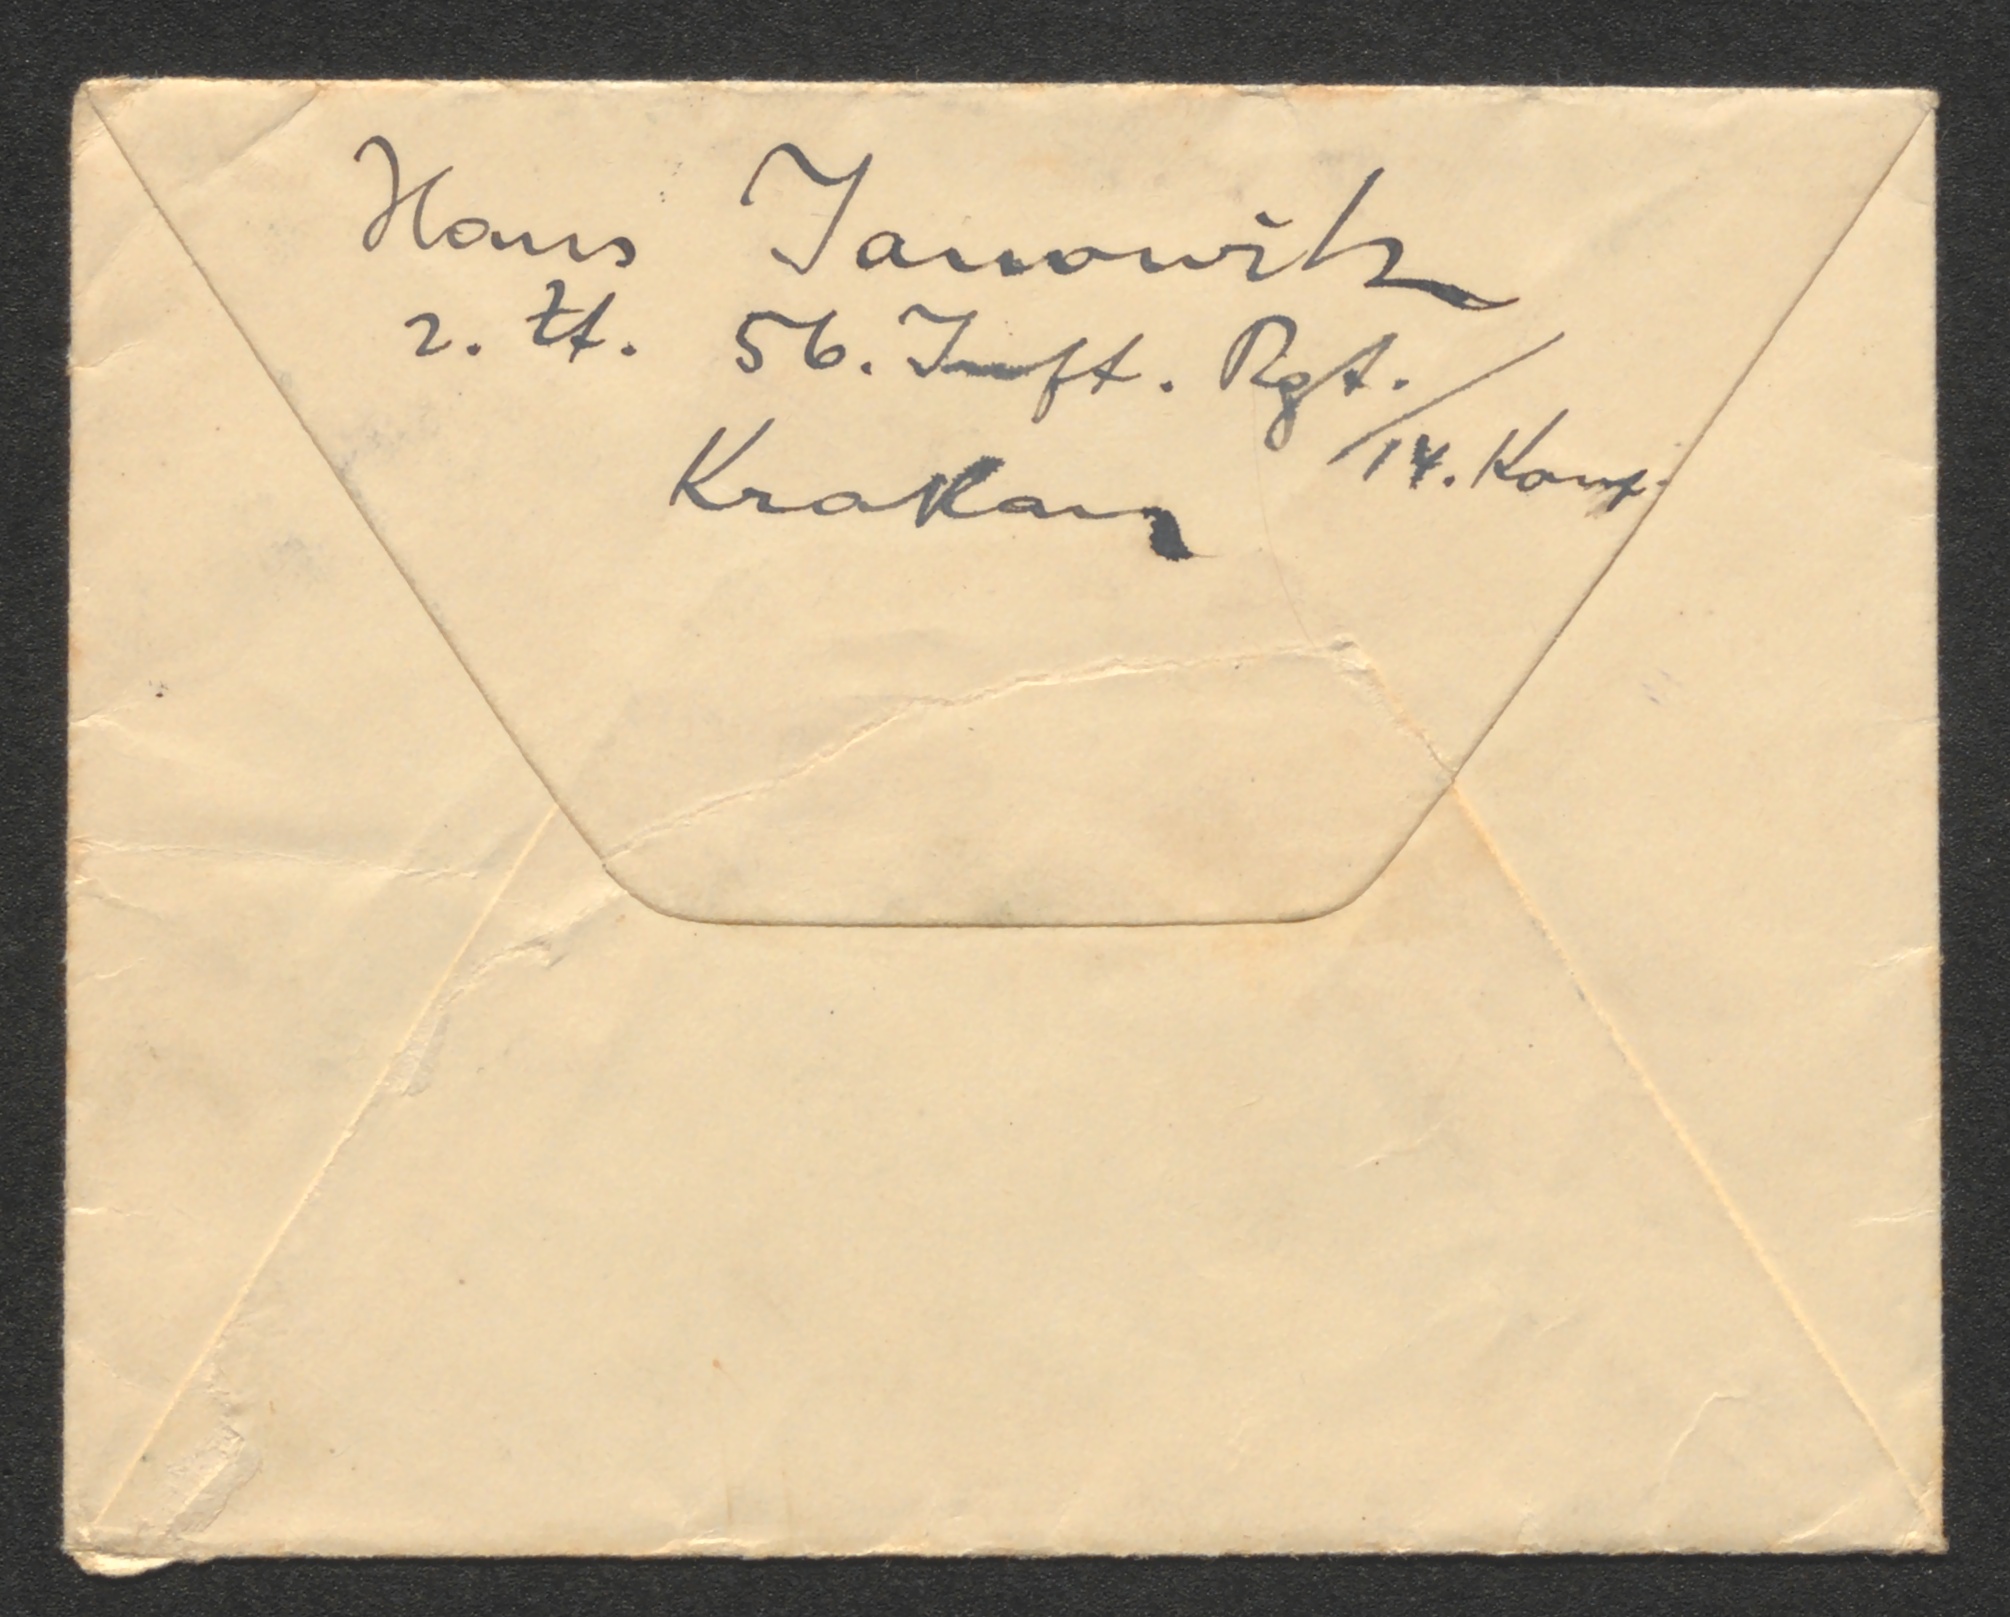 Hans Janowitz
z. Zt. 56. Inft. Rgt. / 14. Komp.
Krakau